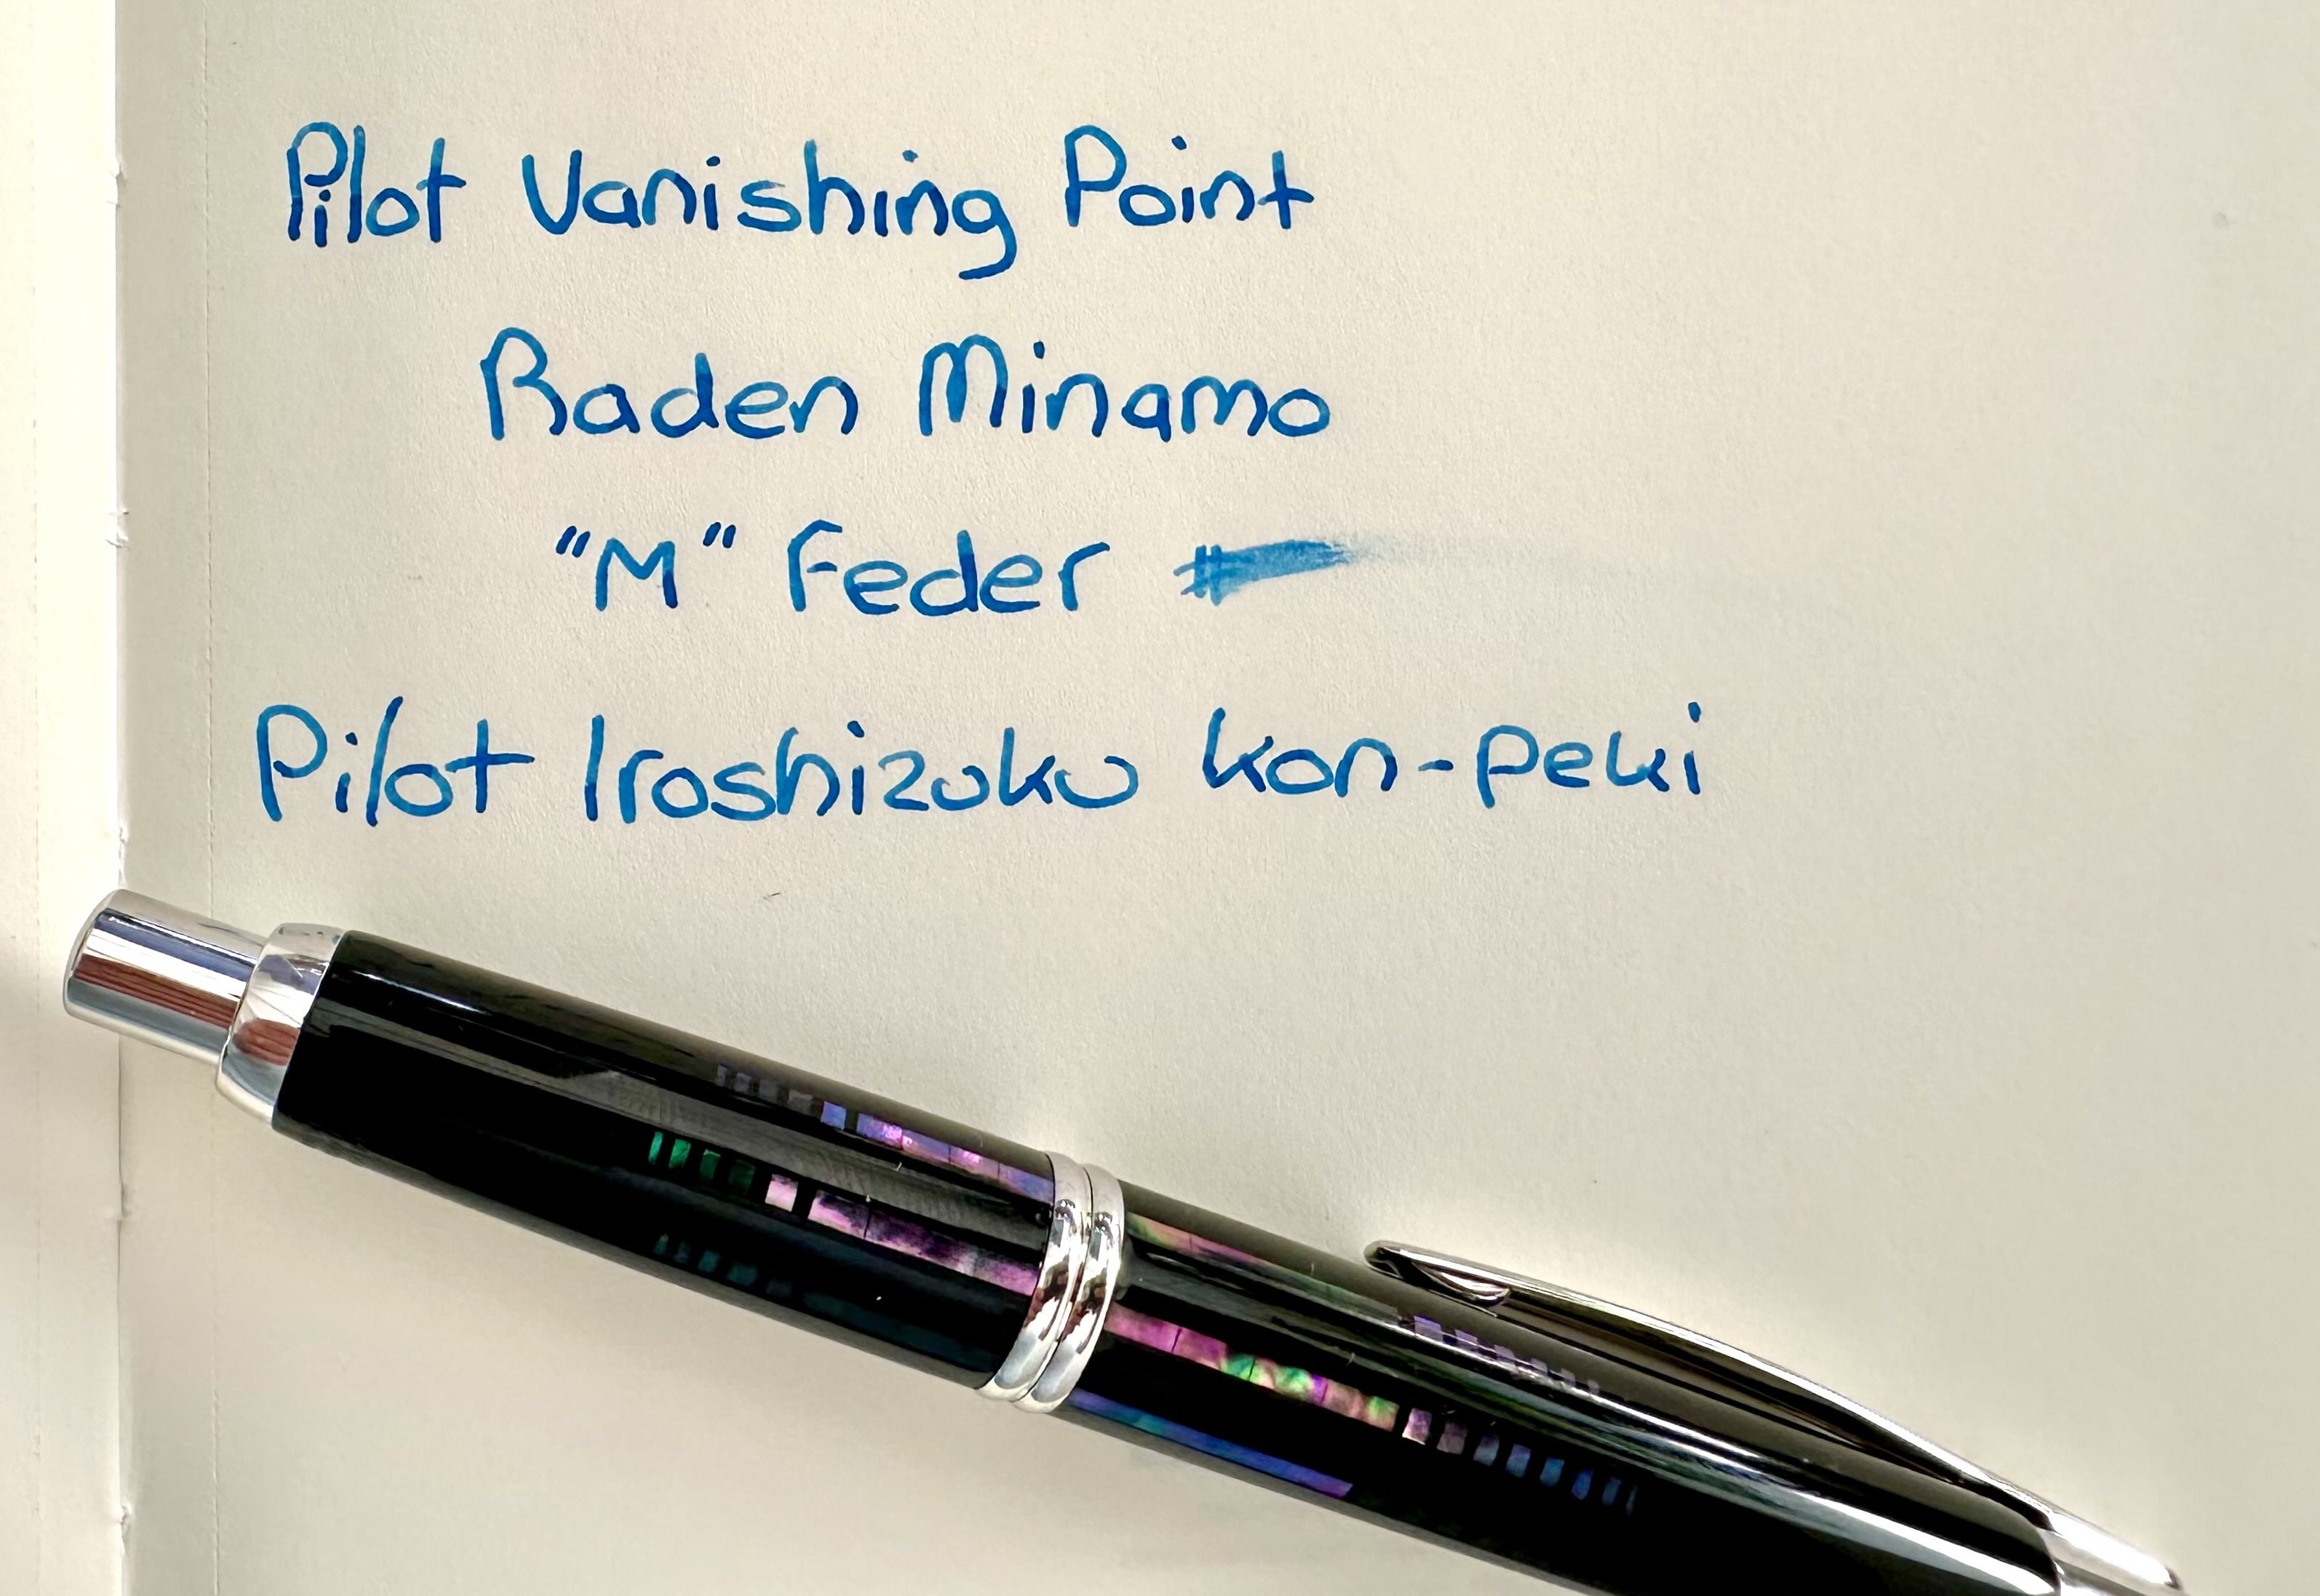 Pilot Vanishing Point
Raden Minamo
"M" Feder #
Pilot Iroshizuku kon-peki